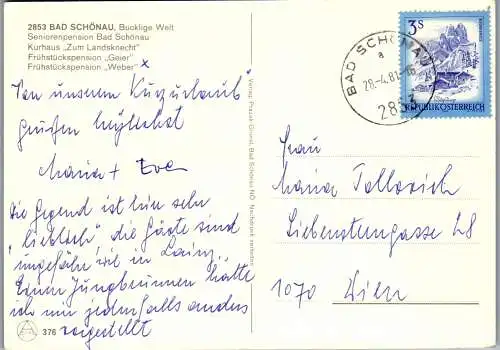 2853 BAD SCHÖNAU, Bucklige Welt
Seniorenpension Bad Schönau
Kurhaus "Zum Landsknecht"
Frühstückspension „Geier"
Frühstückspension „Weber" x
Von unserem Kurzurlaub
grüßen herzlichst
Maria + Eva
Die Gegend ist hier sehr
"lieblich" die Gäste sind
ungefähr wie in Lainz.
Einen Jungbrunnen hätte
ich mir jedenfalls anders
vorgestellt
376
BAD SCHÖNAU
a
28.-4.81-16
2853
3S
REPUBLIK ÖSTERREICH
Frau
Maria
Liechtensteingasse 28
1070 Wien